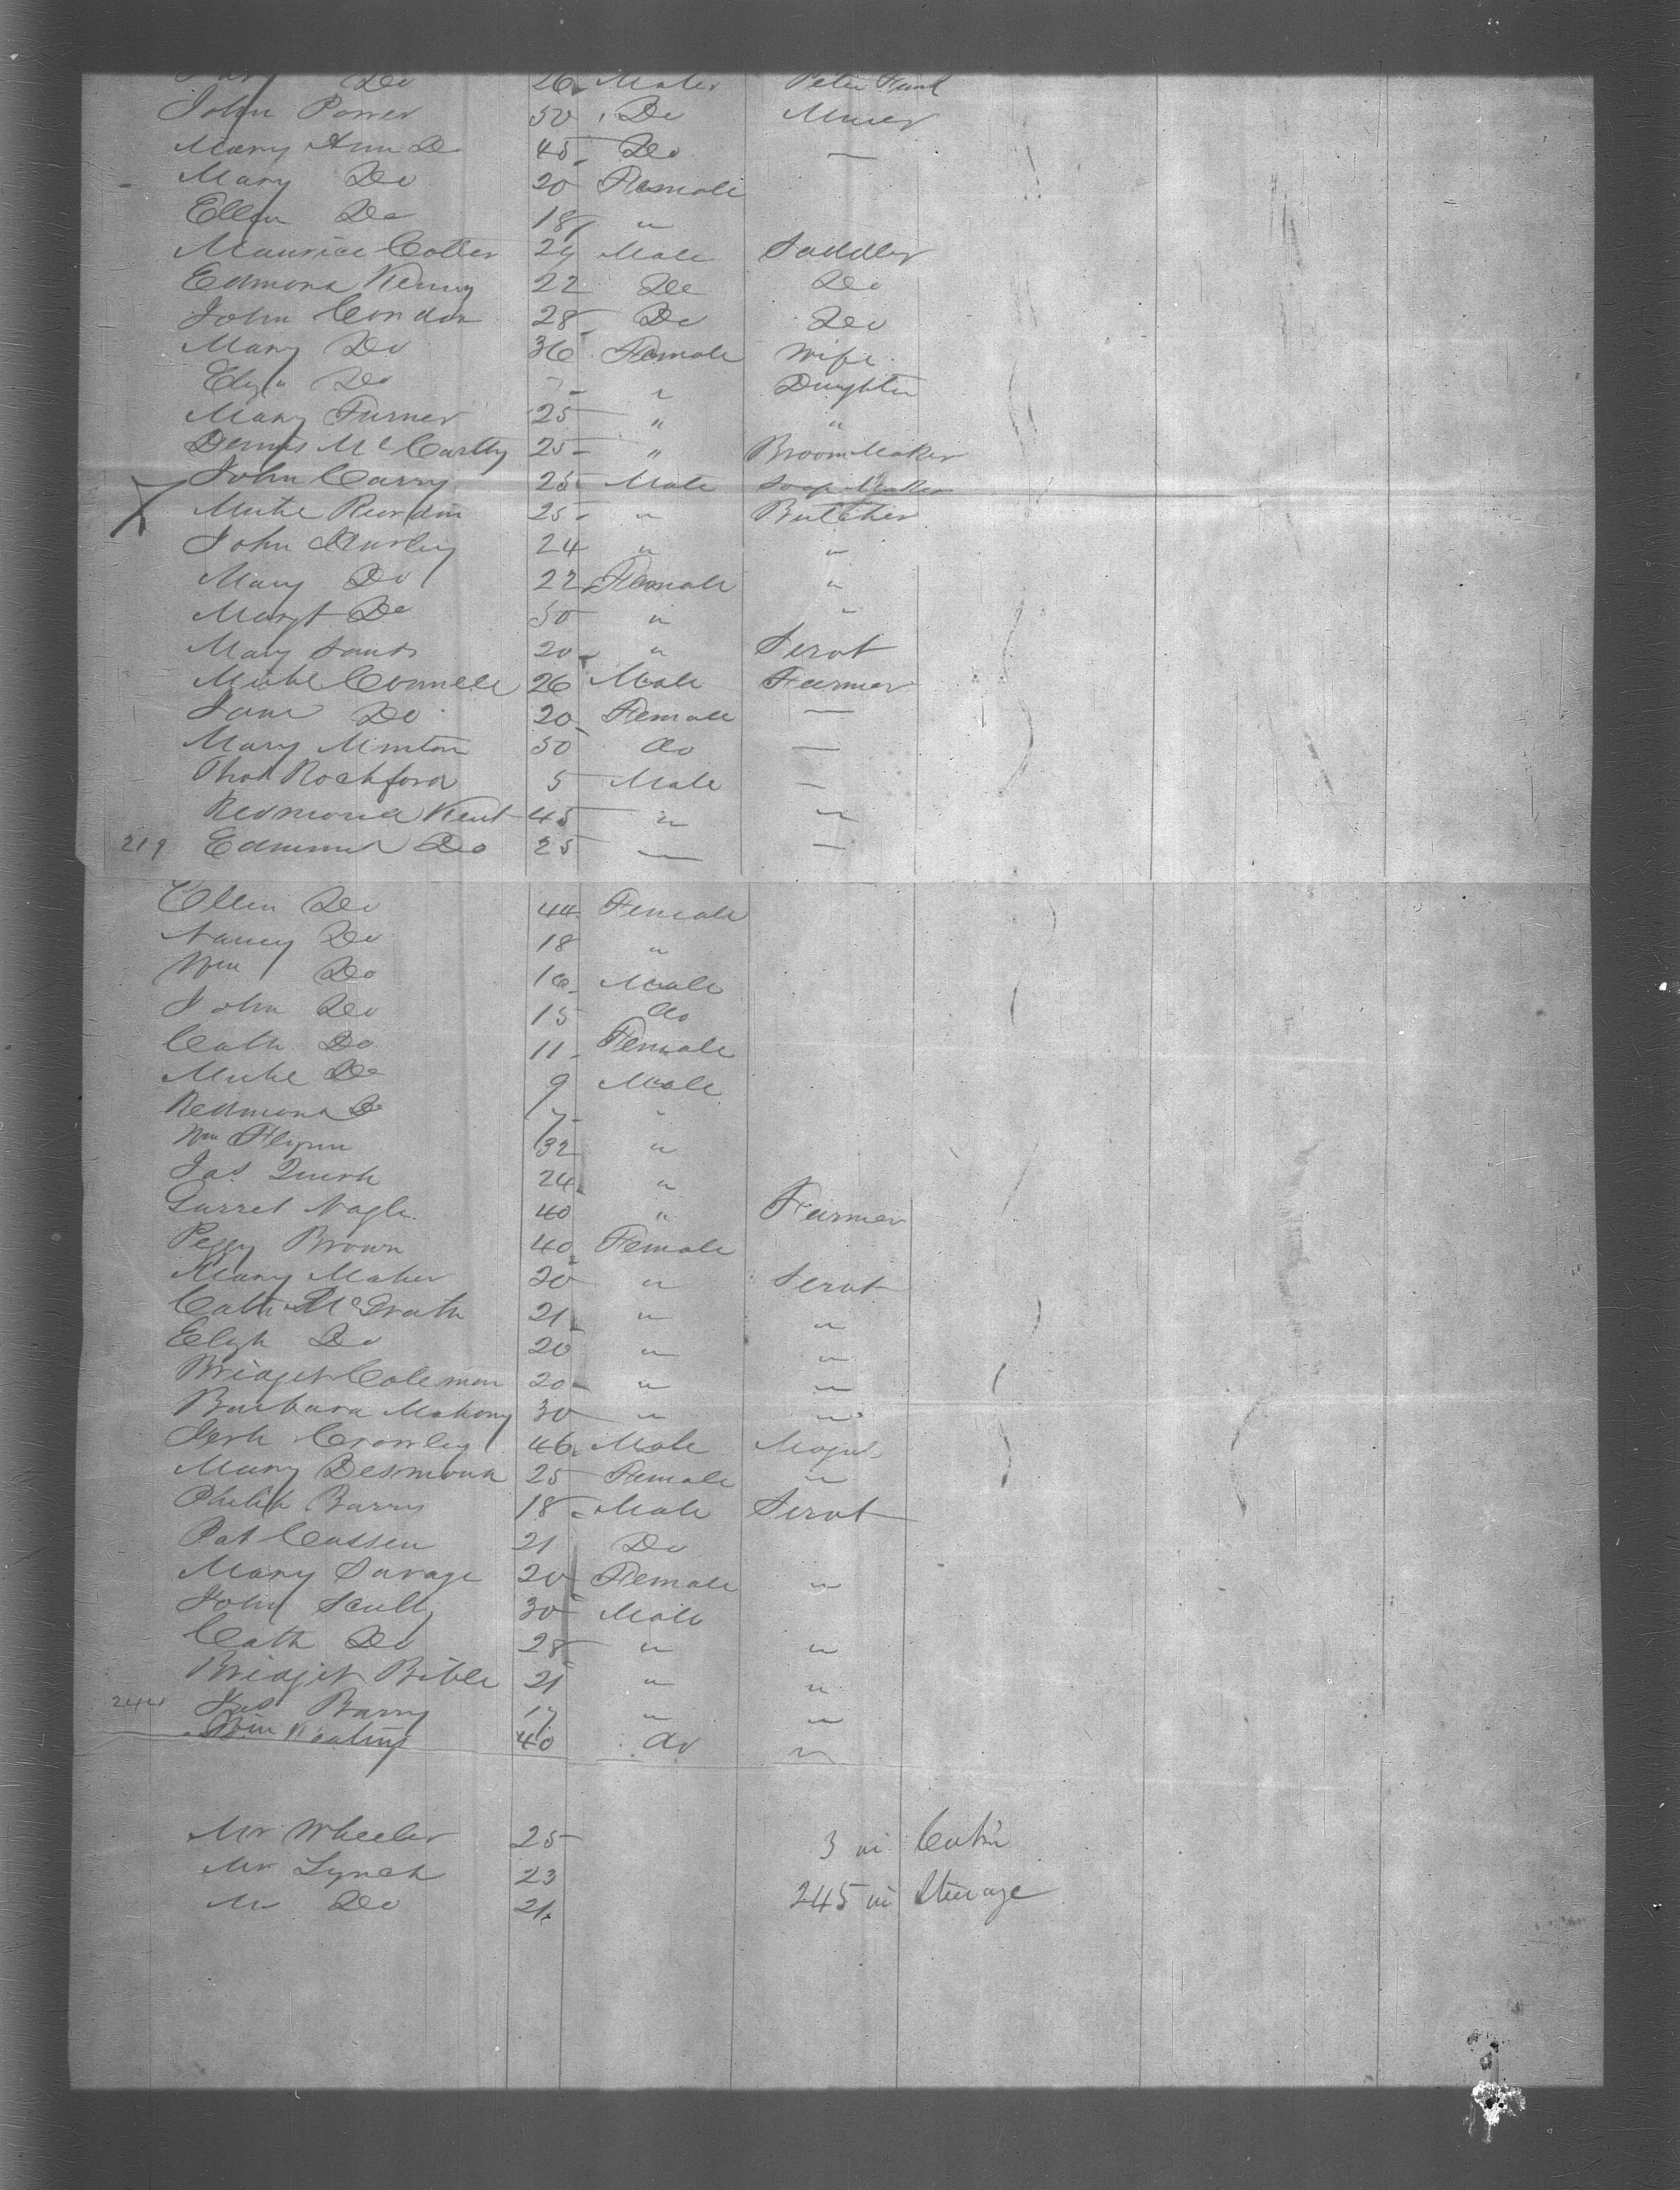 Do 26 Male Peter Funk
John Power 50 Do Miner
Mary Ann Do 45 Do —
Mary Do 20 Female
Ellen Do 18 "
Maurice Cotter 24 Male Saddler
Edmond Kenny 22 Do Do
John Condon 28 Do Do
Mary Do 36 Female Wife
Eliza Do "  Daughter
Mary Turner 25 " "
Dennis McCarthy 25 " Broom Maker
John Carry 25 Male Soap Maker
Miche Riordin 25 " Butcher
John Hurley 24 " "
Mary Do 22 Female "
Margt Do 50 " "
Mary 20 " Servt
Miche Connell 26 Male Farmer
Jane Do 20 Female —
Mary Minton 50 do —
Thos Rochford 5 Male —
Redmond Kent 45 " "
219 Edmund Do 25 — —
Ellen Do 44 Female
Nancy Do 18 "
Wm Do 16 Male
John Do 15 do
Cath Do 11 Female
Miche Do 9 Male
Redmond Do 7 "
Wm Flynn 32 "
Jas Quirk 24 "
Garret Nagle 40 " Farmer
Peggy Brown 40 Female
Mary Maher 20 " Servt
Cath McGrath 21 " "
Elizh Do 20 " "
Bridget Coleman 20 " "
Barbara Mahony 30 " "
Jerh Crowley 46 Male
Mary Desmond 25 Female "
Philip Barry 18 Male Servt
Pat Cussen 21 Do
Mary Savage 20 Female "
John Scully 30 Male
Cath Do 28 " "
Bridget Bible 21 " "
244 Jas Barry 17 " "
Wm Keating 40 do "
Mr Wheeler 25 3 in Cabin
Mr Lynch 23
Mr Do 21 245 in Steerage